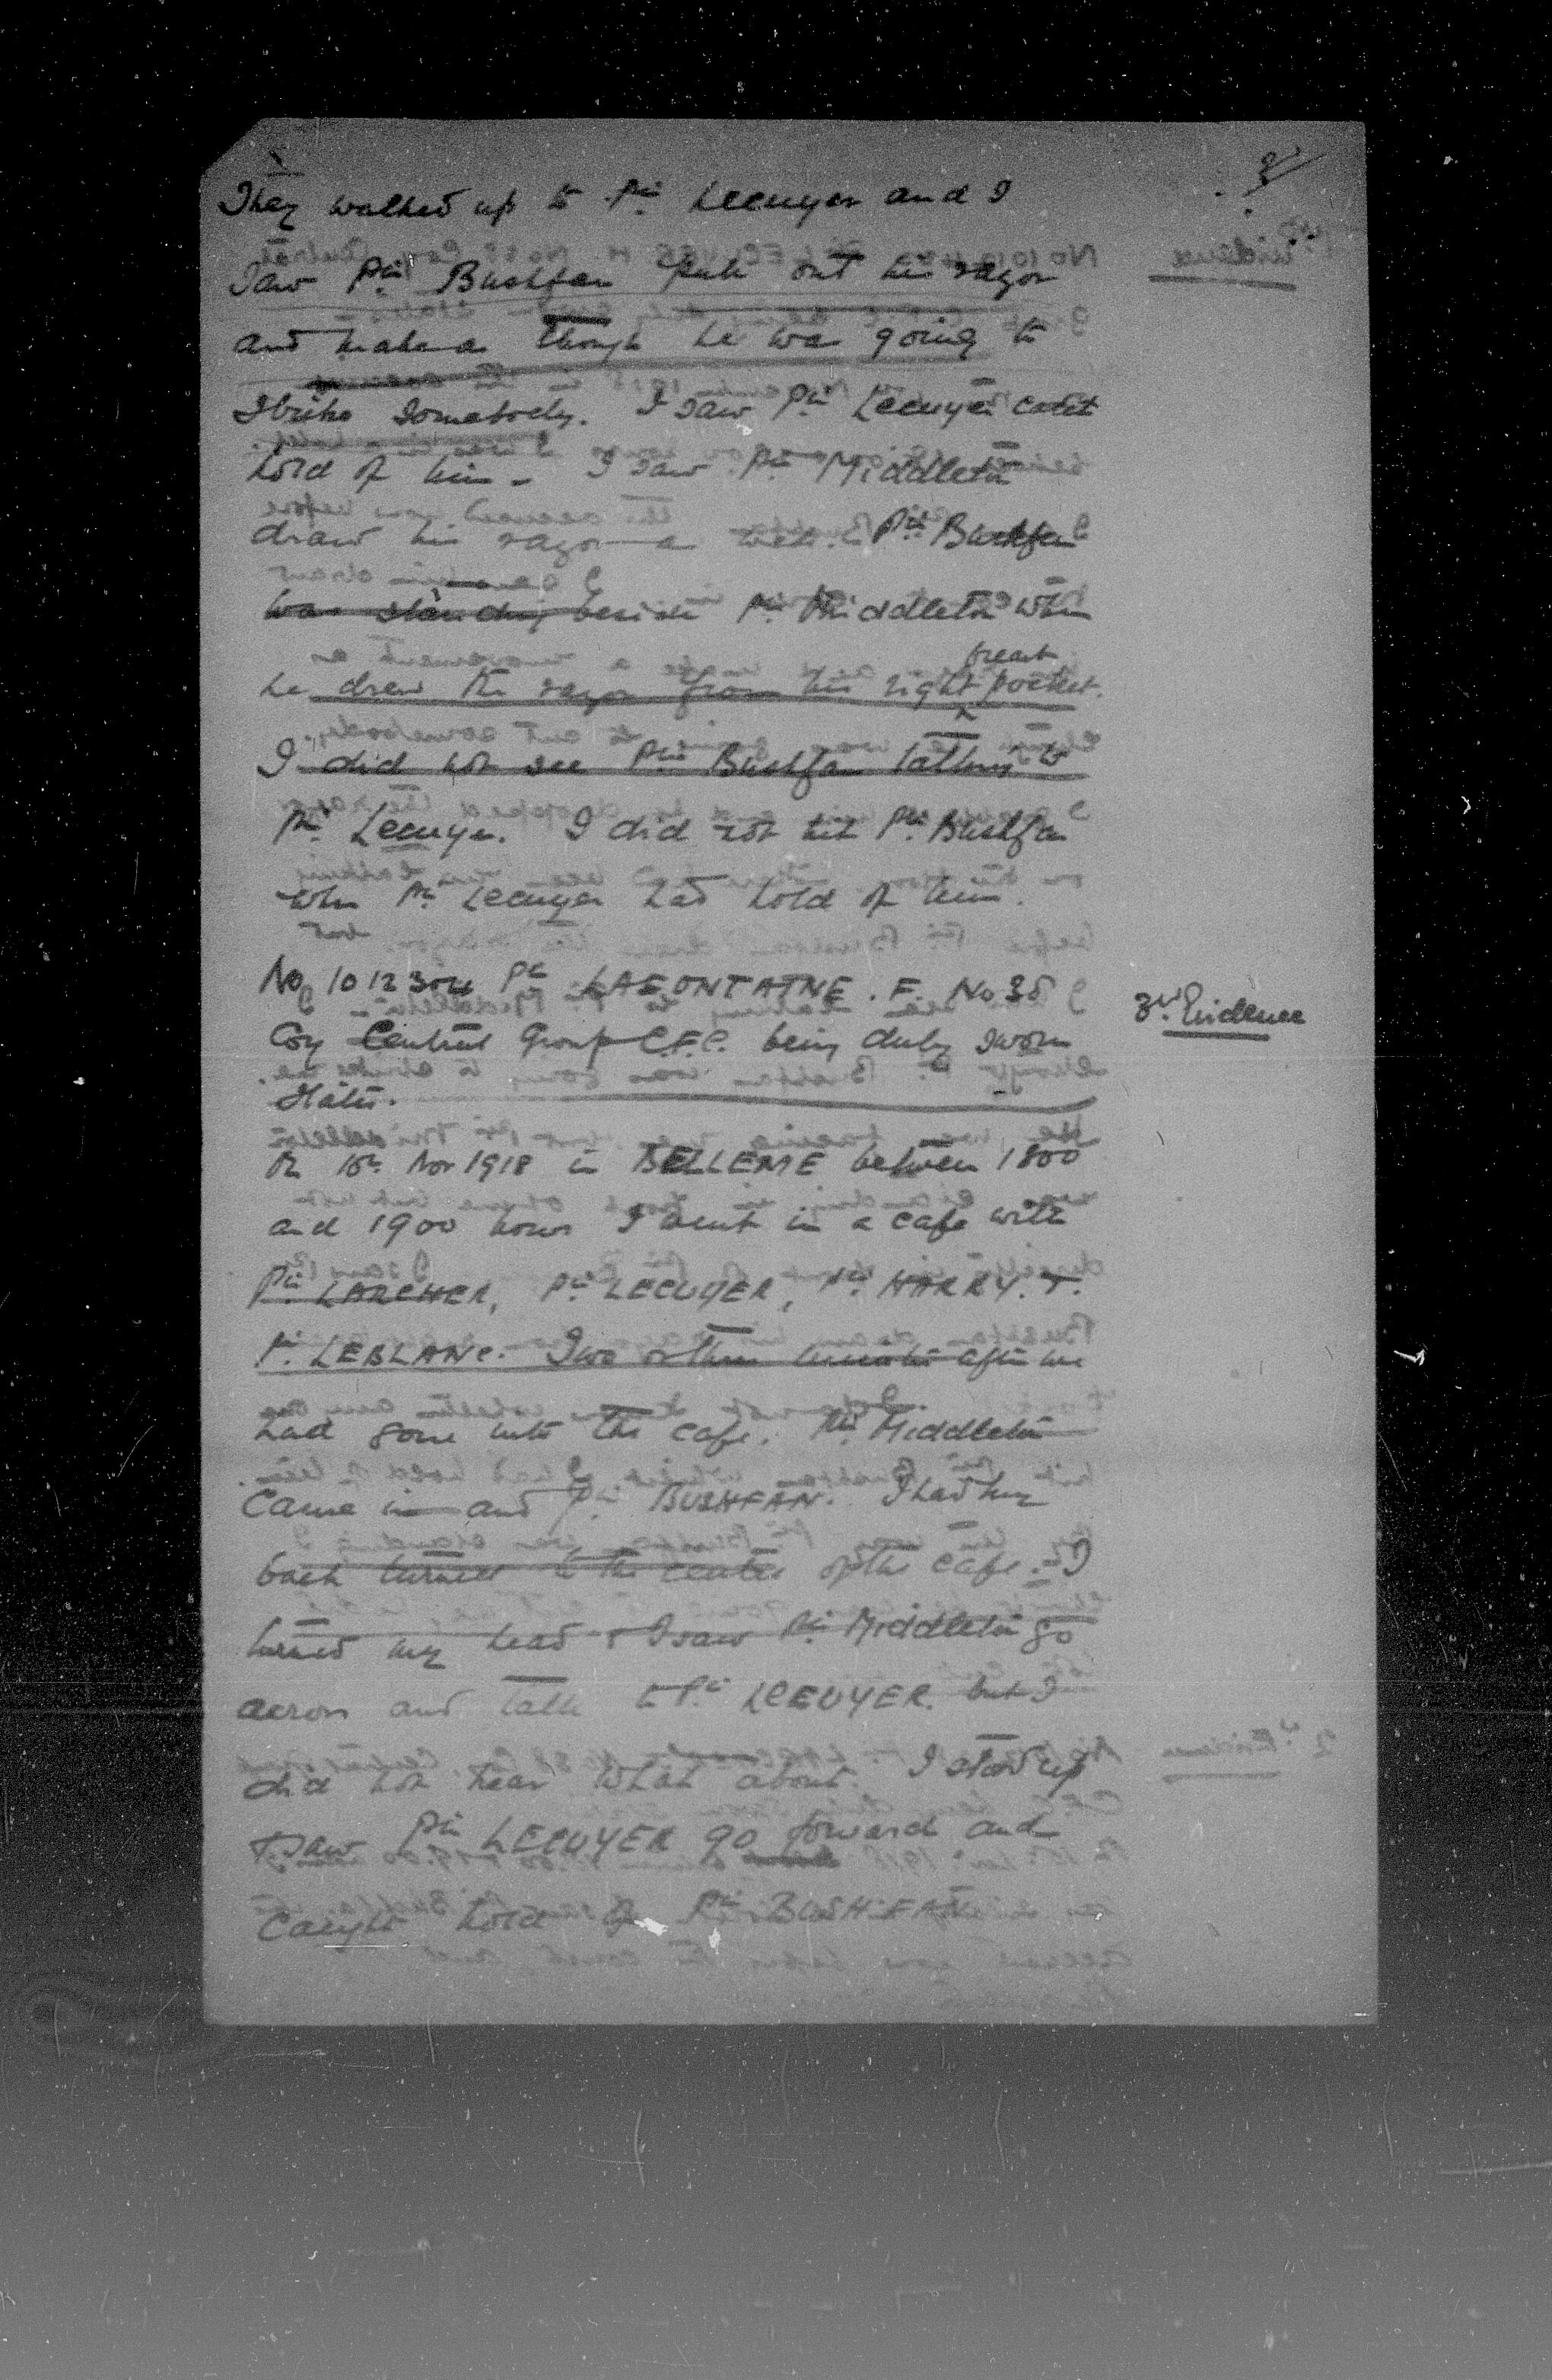 They walked up to Pte Lecuyer and I
saw Pte Bushfan pull out his razor
and make as though he was going to
strike somebody. I saw Pte Lecuyer catch
hold of him. I saw Pte Middleton
draw his razor as well. Pte Bushfan
was standing beside Pte Middleton when
breast
he drew the razor from his right pocket.
I did not see Pte Bushfan talking to
Pte Lecuyer. I did not hit Pte Bushfan
when Pte Lecuyer had hold of him.
3rd Evidence
No 1012304 Pte LAFONTAINE. F. No 38
Coy Central Group C.F.C. being duly sworn
states.
On 10th Nov 1918 in BELLEME between 1800
and 1900 hours I went in a cafe with
Pte LARCHER, Pte LECUYER, Pte HARRY. T.
Pte LEBLANC. Two or three minutes after we
had gone into the cafe. Pte Middleton
came in and Pte BUSHFAN. I had my
back turned to the centre of the cafe. I
turned my head & I saw Pte Middleton go
across and talk to Pte LECUYER. but I
did not hear what about. I stood up
& saw Pte LECUYER go forward and
caught hold of Pte BUSHFAN